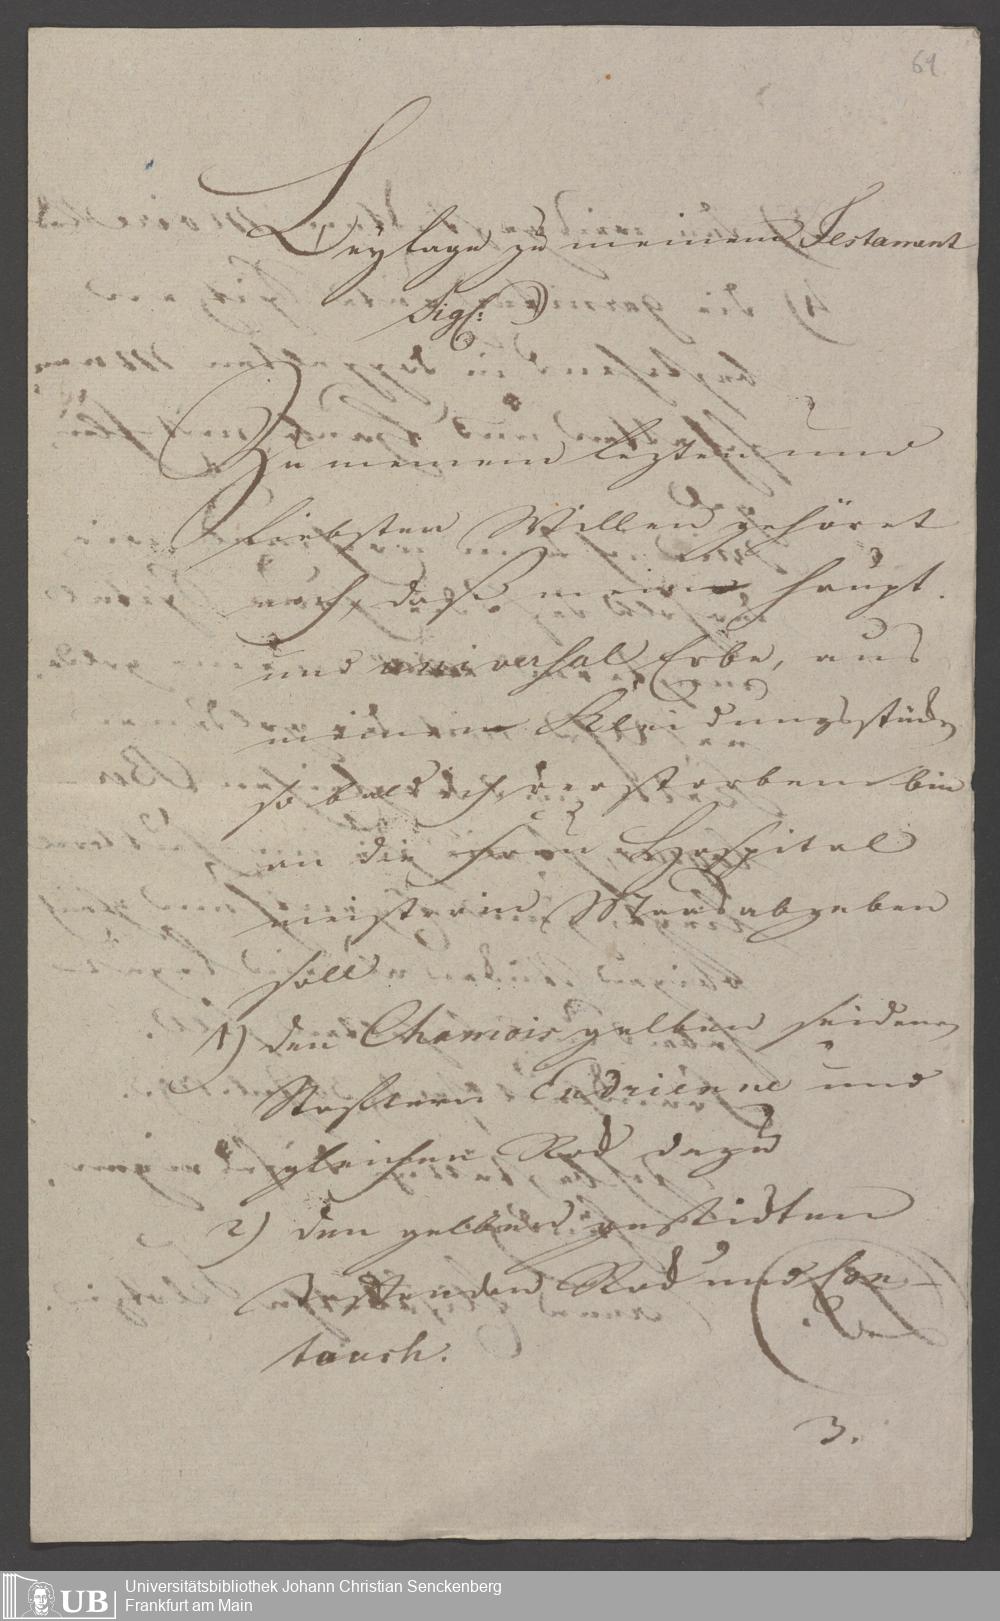 61
Beylage zu meinem Testament
Sigl: D
Zu meinem lezten und
liebsten Willen gehöret
auch, daß meine haupt
und universal Erbe, aus
meinen Kleidungsstücken
so bald ich verstorben bin
an die Frau Hospital
meisterin abgeben
soll
1) den Chamois gelben seidenen
Endrienne und
gleichen Rock dazu
2) den gelben gestickten
Rock und Con-
touch.
3.
UB
Universitätsbibliothek Johann Christian Senckenberg
Frankfurt am Main